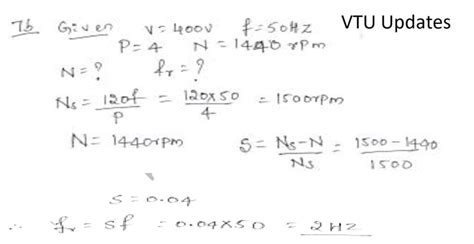 7b Given V=400V f=50HZ VTU Updates
P=4 N=1440 rpm
N=? fr=?
Ns = 120f/P = 120×50/4 = 1500rpm
N= 1440rpm S= Ns-N/Ns = 1500-1440/1500
S=0.04
∴ fr = Sf = 0.04×50 = 2HZ